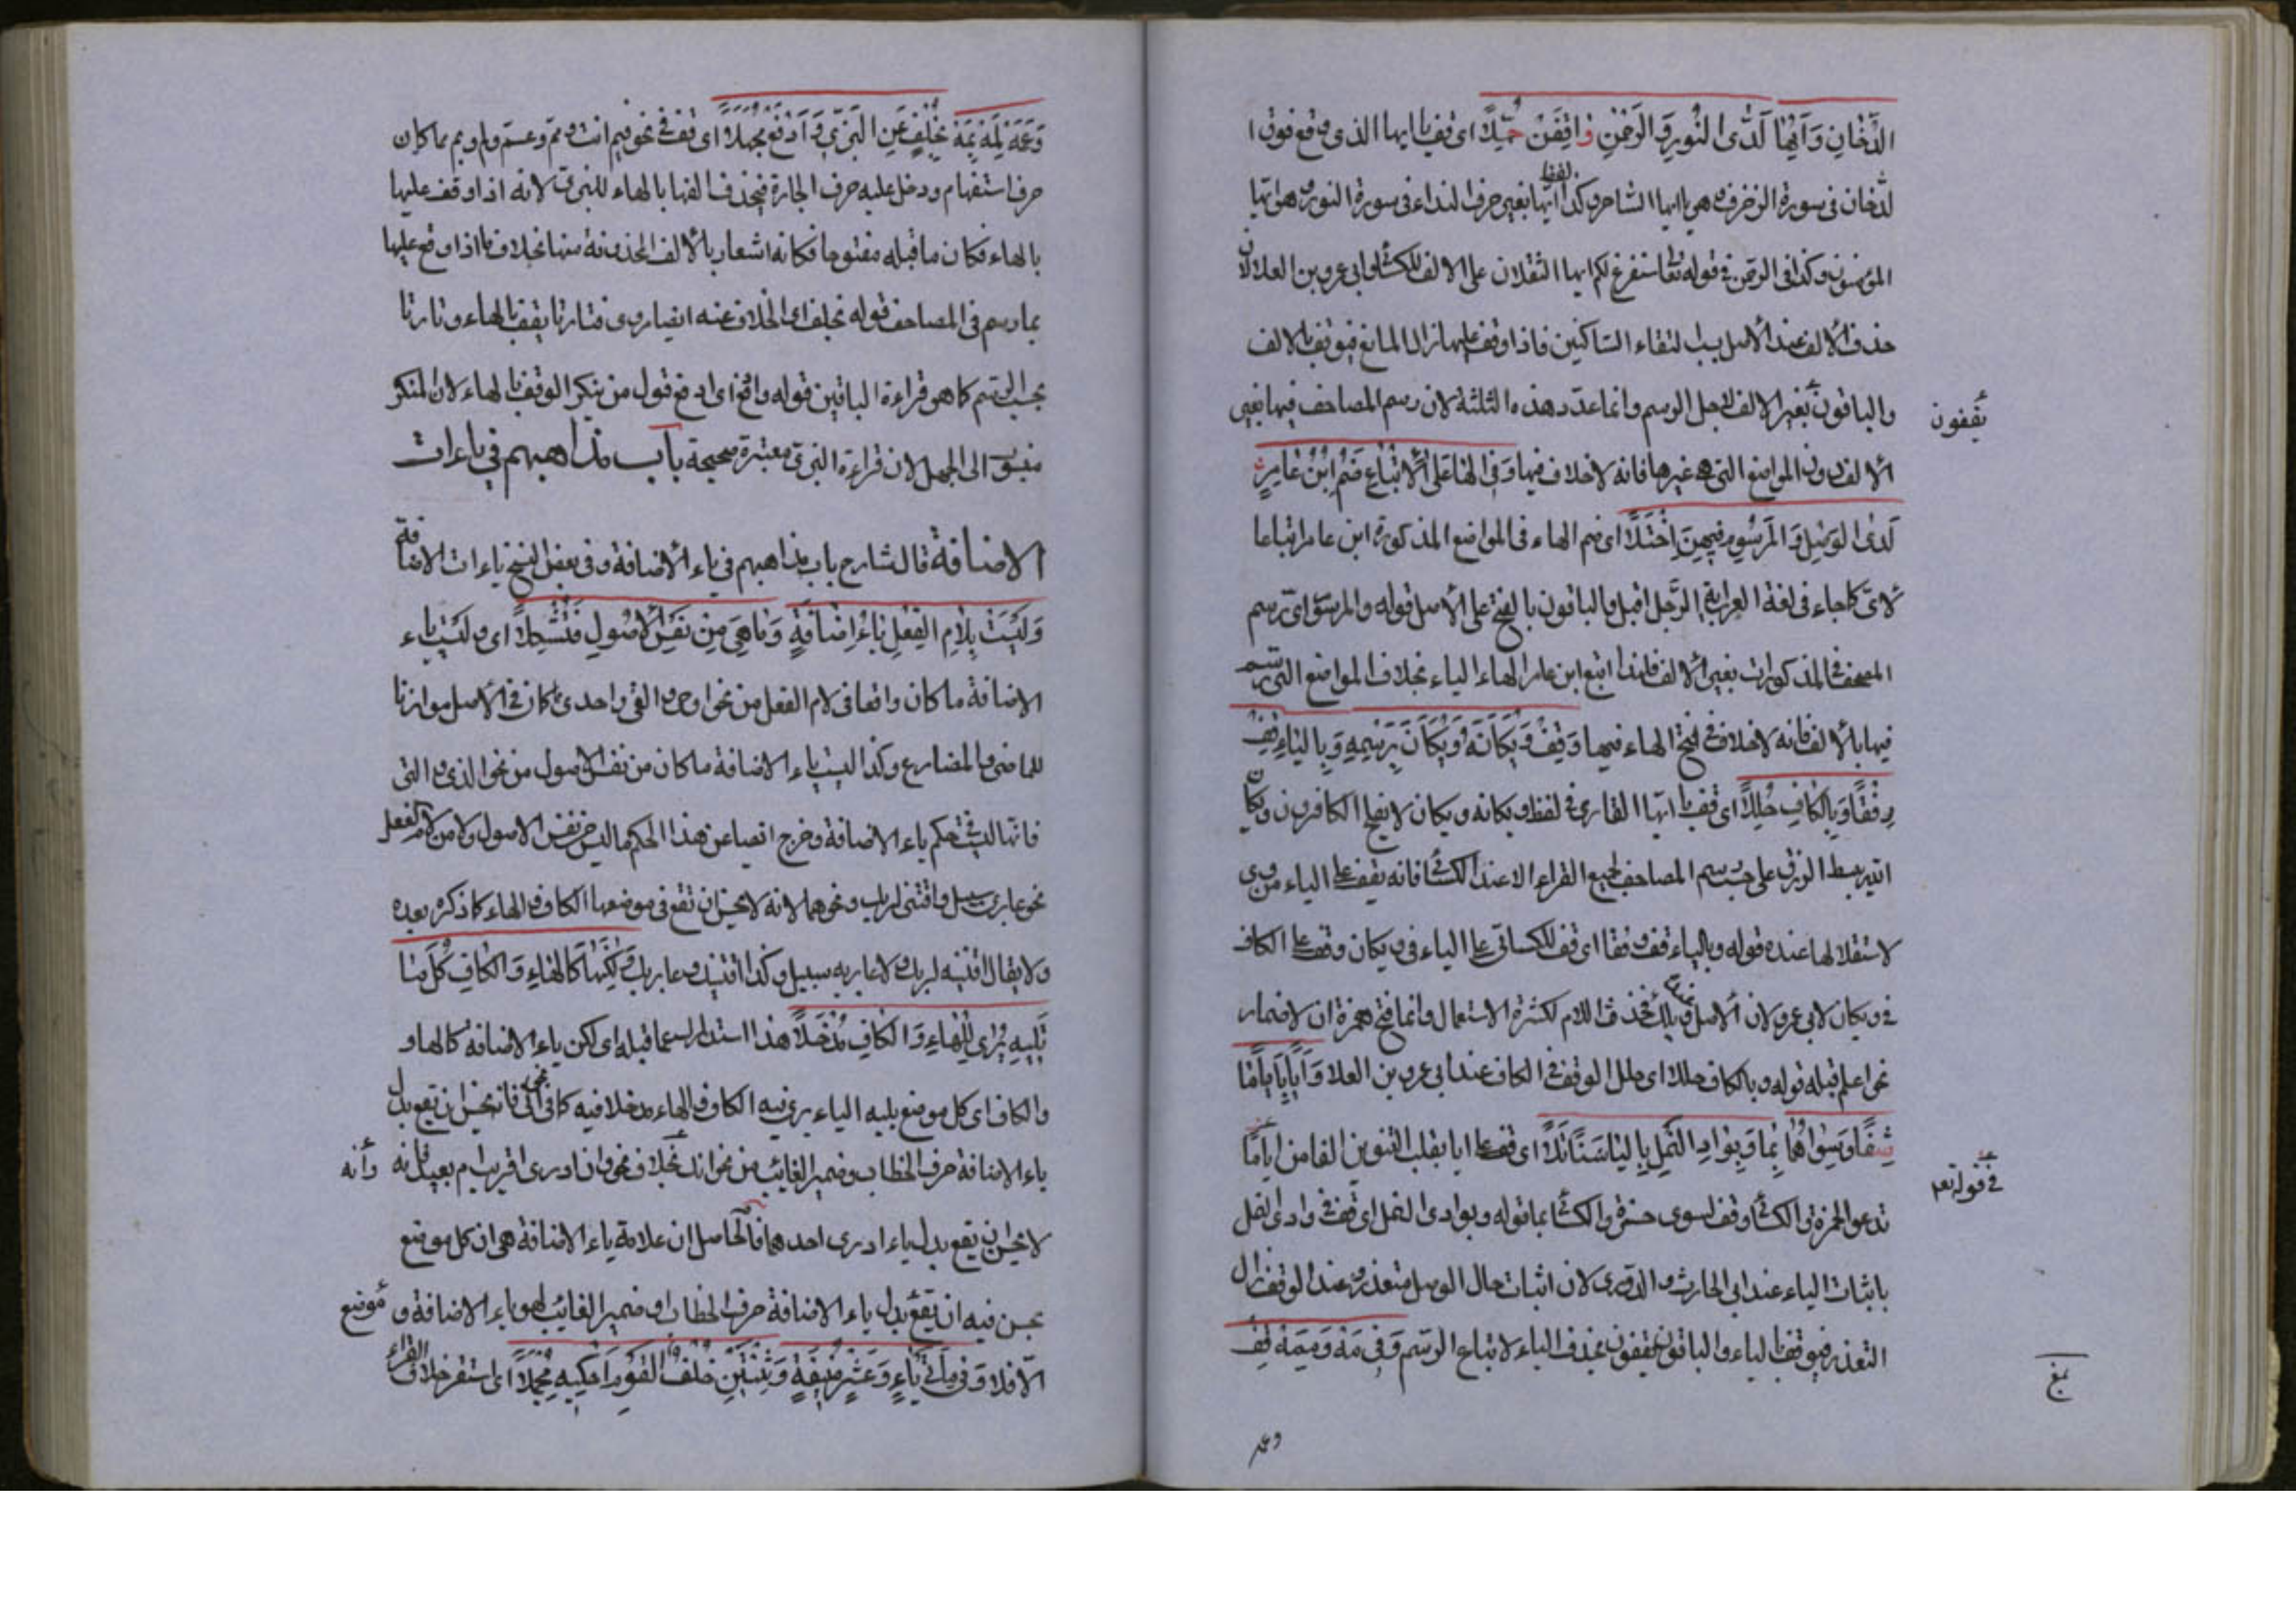 الدُّخَانِ وَاَيُّهَا لَدَى النُّورِ وَالرَّحْمٰنِ رَافَقْنَ حُمَّلًا اى قف يا ايها الذى وقع فوق ا
لدخان فى سورة الزخرف وهى يا ايها الساحر وكذا لفظ ايها بغير حرف النداء فى سورة النور وهو ايها
المؤمنون وكذا فى الرحمن فى قوله تعا سنفرغ لكم ايها الثقلان على الالف للكسائى وابى عمرو بن العلا لان
حذف الالف عند الاصل بسبب التقاء الساكنين فاذا وقف عليها زال المانع فيوقف بالالف
والباقون يقفون بغير الالف لاجل الرسم وانما عدد هذه الثلثة لان رسم المصاحف فيها بغير
الالف دون المواضع التى هى غيرها فانه لا خلاف فيها وَفِى الْهَا عَلَى الْاِتْبَاعِ ضَمَّ ابْنُ عَامِرٍ
لَدَى الْوَصْلِ وَالْمَرْسُومُ فِيهِنَّ اَخْيَلَا اى ضم الهاء فى المواضع المذكورة ابن عامر اتباعا
لاى كما جاء فى لغة العرب ايه الرجل اقبل والباقون بالفتح على الاصل قوله والمرسوم اى رسم
المصحف فى المذكورات بغير الالف فلهذا اتبع ابن عامر الهاء الياء بخلاف المواضع التى رسم
فيها بالالف فانه لا خلاف فى فتح الهاء فيها وَقِفْ وَيْكَاَنَّهُ وَيْكَاَنَّ بِرَسْمِهِ وَبِالْيَاءِ قِفْ
رِفْقًا وَبِالْكَافِ حُلِّلَا اى قف يا ايها القارى فى لفظ ويكانه ويكان لا يفلح الكافرون ويكان
الله يبسط الرزق على حسب رسم المصاحف لجميع القراء الا عند الكسائى فانه يقف على الياء من وى
لاستقلالها عنده قوله وبالياء قف رفقا اى قف للكسائى على الياء فى ويكان وقف على الكاف
فى ويكان لابى عمرو لان الاصل ويلك فحذف اللام لكثرة الاستعمال وانما فتح همزة ان لاضمار
نحو اعلم قبله قوله وبالكاف حللا اى حلل الوقف فى الكاف عند ابى عمرو بن العلا وَاَيًّا بِاَيًّا مَّا
شَفَا وَسِوَاهُمَا بِمَا وَبِوَادِ النَّمْلِ بِالْيَا سَنًا تَلَا اى قف على ايا بقلب التنوين الفا من اياما
تدعوا لحمزة والكسائى وقف لسوى حمزة والكسائى بما قوله وبوادى النمل اى قف فى وادى النمل
باثبات الياء عند ابى الحارث والدورى لان اثبات حال الوصل متعذر وعند الوقف زال
التعذر فيوقف بالياء والباقون يقفون بحذف الياء لاتباع الرسم وَفِى مَهْ وَمِمَّهْ قِفْ
يقفون
فى قوله تعا
بلغ
وعمه
وَعَمَّهْ لِمَهْ بِمَهْ بِخُلْفٍ عَنِ الْبَزِّىِّ وَادْفَعْ مُجَهِّلَا اى قف فى نحو فيم انت ومم وعم ولم وبم مما كان
حرف استفهام ودخل عليه حرف الجارة فيحذف الفها بالهاء للبزى لانه اذا وقف عليها
بالهاء فكان ما قبله مفتوحا فكانه اشعار بالالف المحذوفة منها بخلاف ما اذا وقع عليها
بما رسم فى المصاحف قوله بخلف اى الخلاف عنه ايضا روى فتارتا يقف بالهاء وتارتا
بحسب الرسم كما هو قراءة الباقين قوله وادفع اى ادفع قول من ينكر الوقف بالهاء لان المنكر
منسوب الى الجهل لان قراءة البزى معتبرة صحيحة باب مذاهبهم فى ياءات
الاضافة قال الشارح باب مذاهبهم فى ياء الاضافة وفى بعض النسخ ياءات الاضافة
وَلَيْسَتْ بِلَامِ الْفِعْلِ يَاءُ اِضَافَةٍ وَمَا هِىَ مِنْ نَفْسِ الْاُصُولِ فَتُشْكِلَا اى وليست ياء
الاضافة ما كان واقعا فى لام الفعل من نحو اوحى والقى واحدى كان فى الاصل موازنا
للماضى والمضارع وكذا ليست ياء الاضافة ما كان من نفس الاصول من نحو الذى والتى
فانها ليست فى حكم ياء الاضافة وخرج ايضا عن هذا الحكم ما ليس من نفس الاصول ولا من لام الفعل
نحو عابرى سبيل واقنتى لربك ونحوهما لانه لا يحسن ان تقع فى موضعها الكاف والهاء كما ذكره بعده
ولا يقال اقنته لربك ولا عابريه سبيل وكذا اقنتك وعابريك وَلٰكِنَّهَا كَالْهَاءِ وَالْكَافِ كُلُّ مَا
تَلِيهِ يُرٰى لِلْهَاءِ وَالْكَافِ مَدْخَلَا هذا استدراك عما قبله اى لكن ياء الاضافة كالهاء و
والكاف اى كل موضع يليه الياء يرى فيه الكاف والهاء مدخلا فيه كما فى انى فانه يحسن ان تقع بدل
ياء الاضافة حرف الخطاب وضمير الغائب من نحو انك بخلاف نحو وان ادرى اقريب ام بعيد فانه وأنه
لا يحسن ان يقع بدل ياء ادرى احدهما فالحاصل ان علامة ياء الاضافة هى ان كل موضع
يحسن فيه ان يقع بدل ياء الاضافة حرف الخطاب او ضمير الغائب فهو ياء الاضافة و موضع
الا فلا وَفِى مِائَتَىْ يَاءٍ وَعَشْرٍ مُنِيفَةٍ وَثِنْتَيْنِ خُلْفُ الْقَوْمِ اَحْكِيهِ مُجْمَلَا اى استقر خلاف القراء